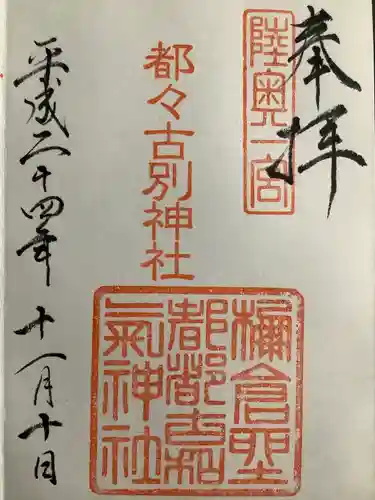 奉拝
陸奥一宮
都々古別神社
棚倉野
都都古和
氣神社
平成二十四年 十一月十日